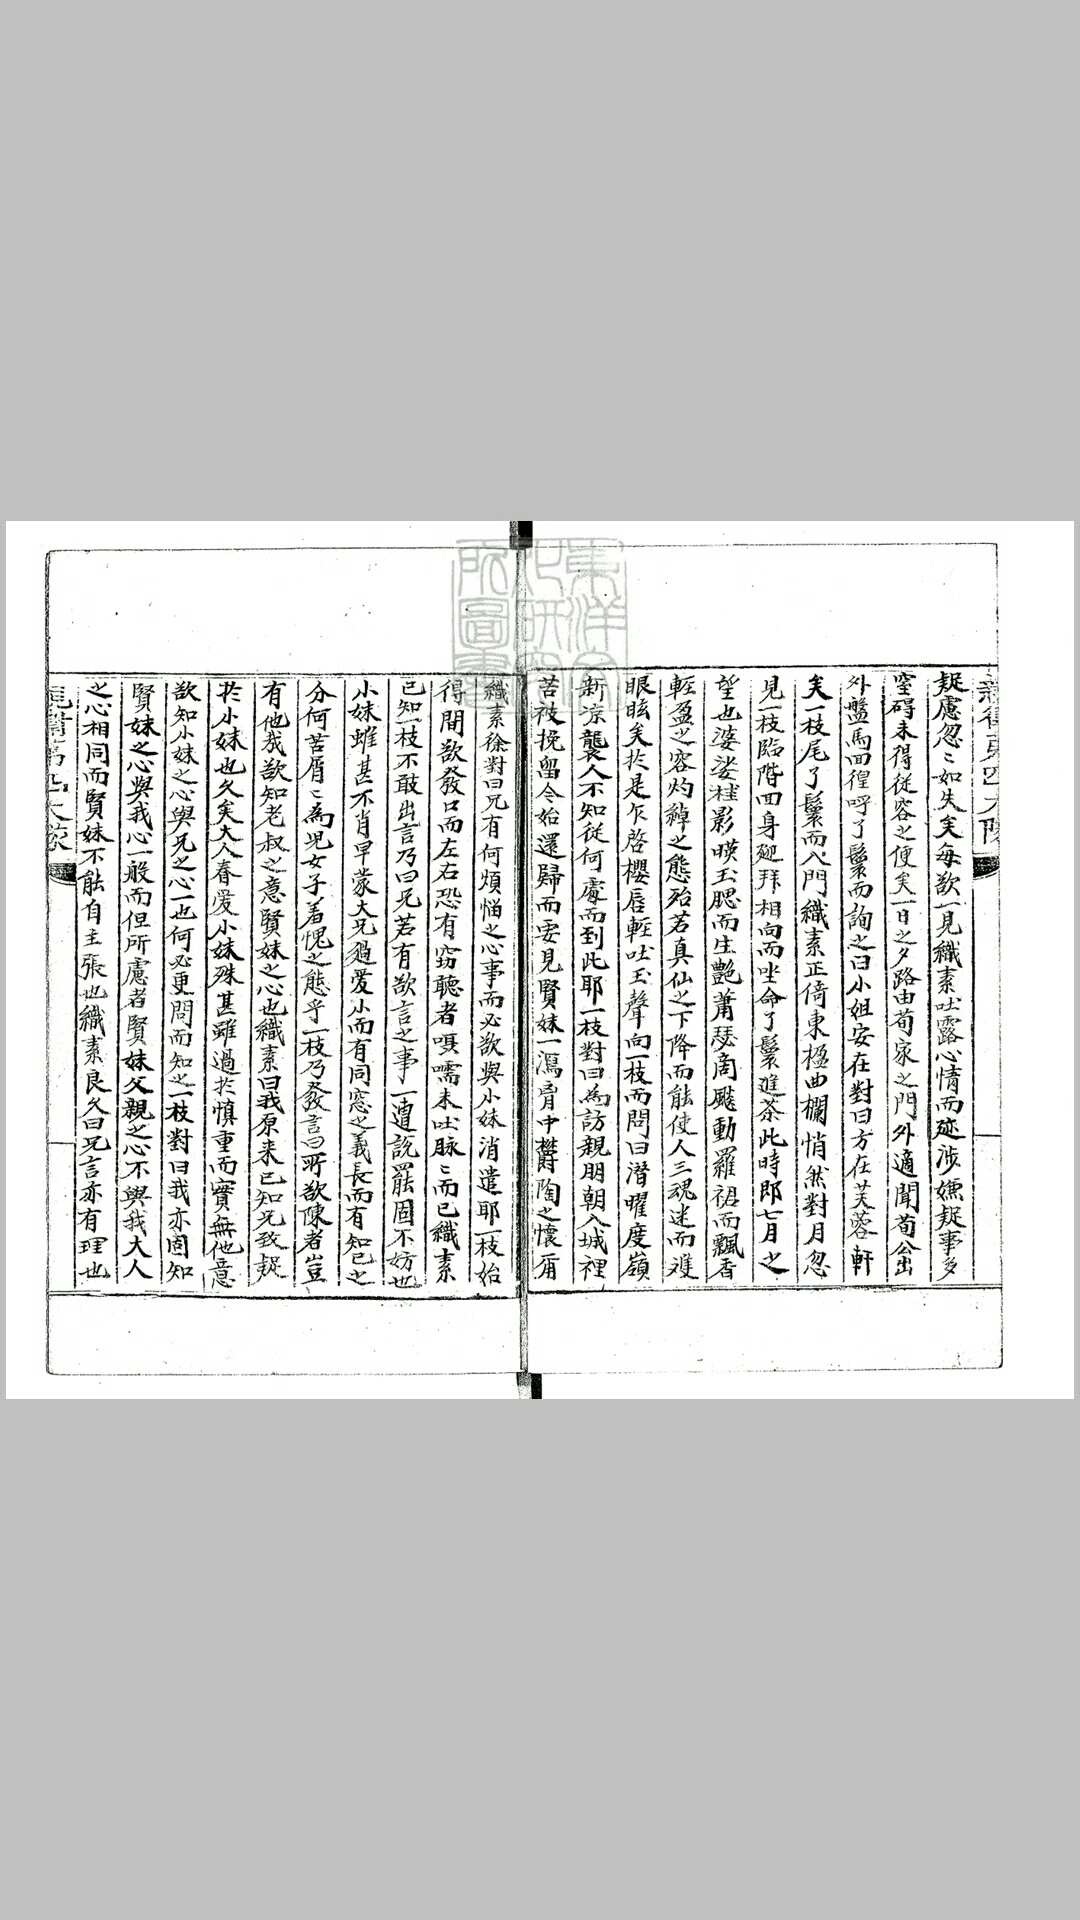 疑慮忽〻如失矣每欲一見織素吐露心情而跡涉嫌疑事多
窒碍未得從容之便矣一日之夕路由荀家之門外適聞荀公出
外盤馬回徨呼了鬟而詢之曰小姐安在對曰方在芙蓉軒
矣一枝尾了鬟而入門織素正倚東楹曲欄悄然對月忽
見一枝臨階回身迎拜相向而坐命了鬟進茶此時即七月之
望也婆娑桂影暎玉腮而生艷蕭瑟商飈動羅裙而飄香
輕盈之容灼綽之態殆若真仙之下降而能使人三魂迷而雙
眼眩矣於是乍啓櫻唇輕吐玉聲向一枝而問曰潛曜度嶺
新凉襲人不知從何處而到此耶一枝對曰為訪親朋朝入城裡
苦被挽留今始還歸而要見賢妹一瀉胷中欝陶之懷甭
織素徐對曰兄有何煩惱之心事而必欲與小妹消遣耶一枝始
得間欲發口而左右恐有窃聽者囁嚅未吐脉〻而已織素
已知一枝不敢出言乃曰兄若有欲言之事一遭說罷固不妨也
小妹雖甚不肖早蒙大兄過愛小而有同窓之義長而有知己之
分何苦屑〻為児女子羞愧之態乎一枝乃發言曰所欲陳者豈
有他哉欲知老叔之意賢妹之心也織素曰我原来已知兄致疑
於小妹也久矣大人眷愛小妹殊甚雖過於慎重而實無他意
欲知小妹之心與兄之心一也何必更問而知之一枝對曰我亦固知
賢妹之心與我心一般而但所慮者賢妹父親之心不與我大人
之心相同而賢妹不能自主張也織素良久曰兄言亦有理也